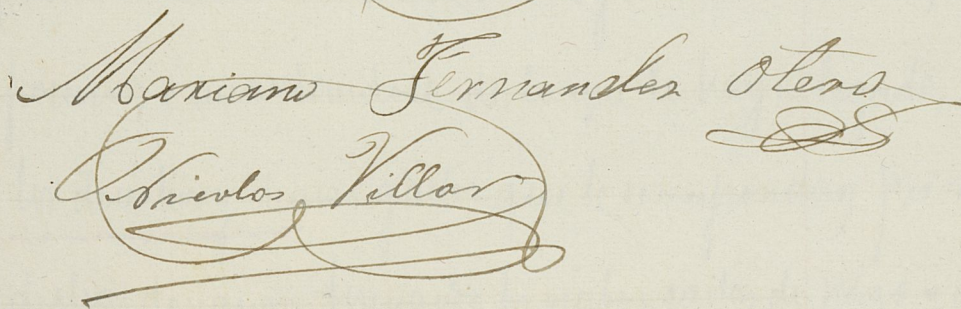 Mariano Fernandez Otero
Nicolas Villar